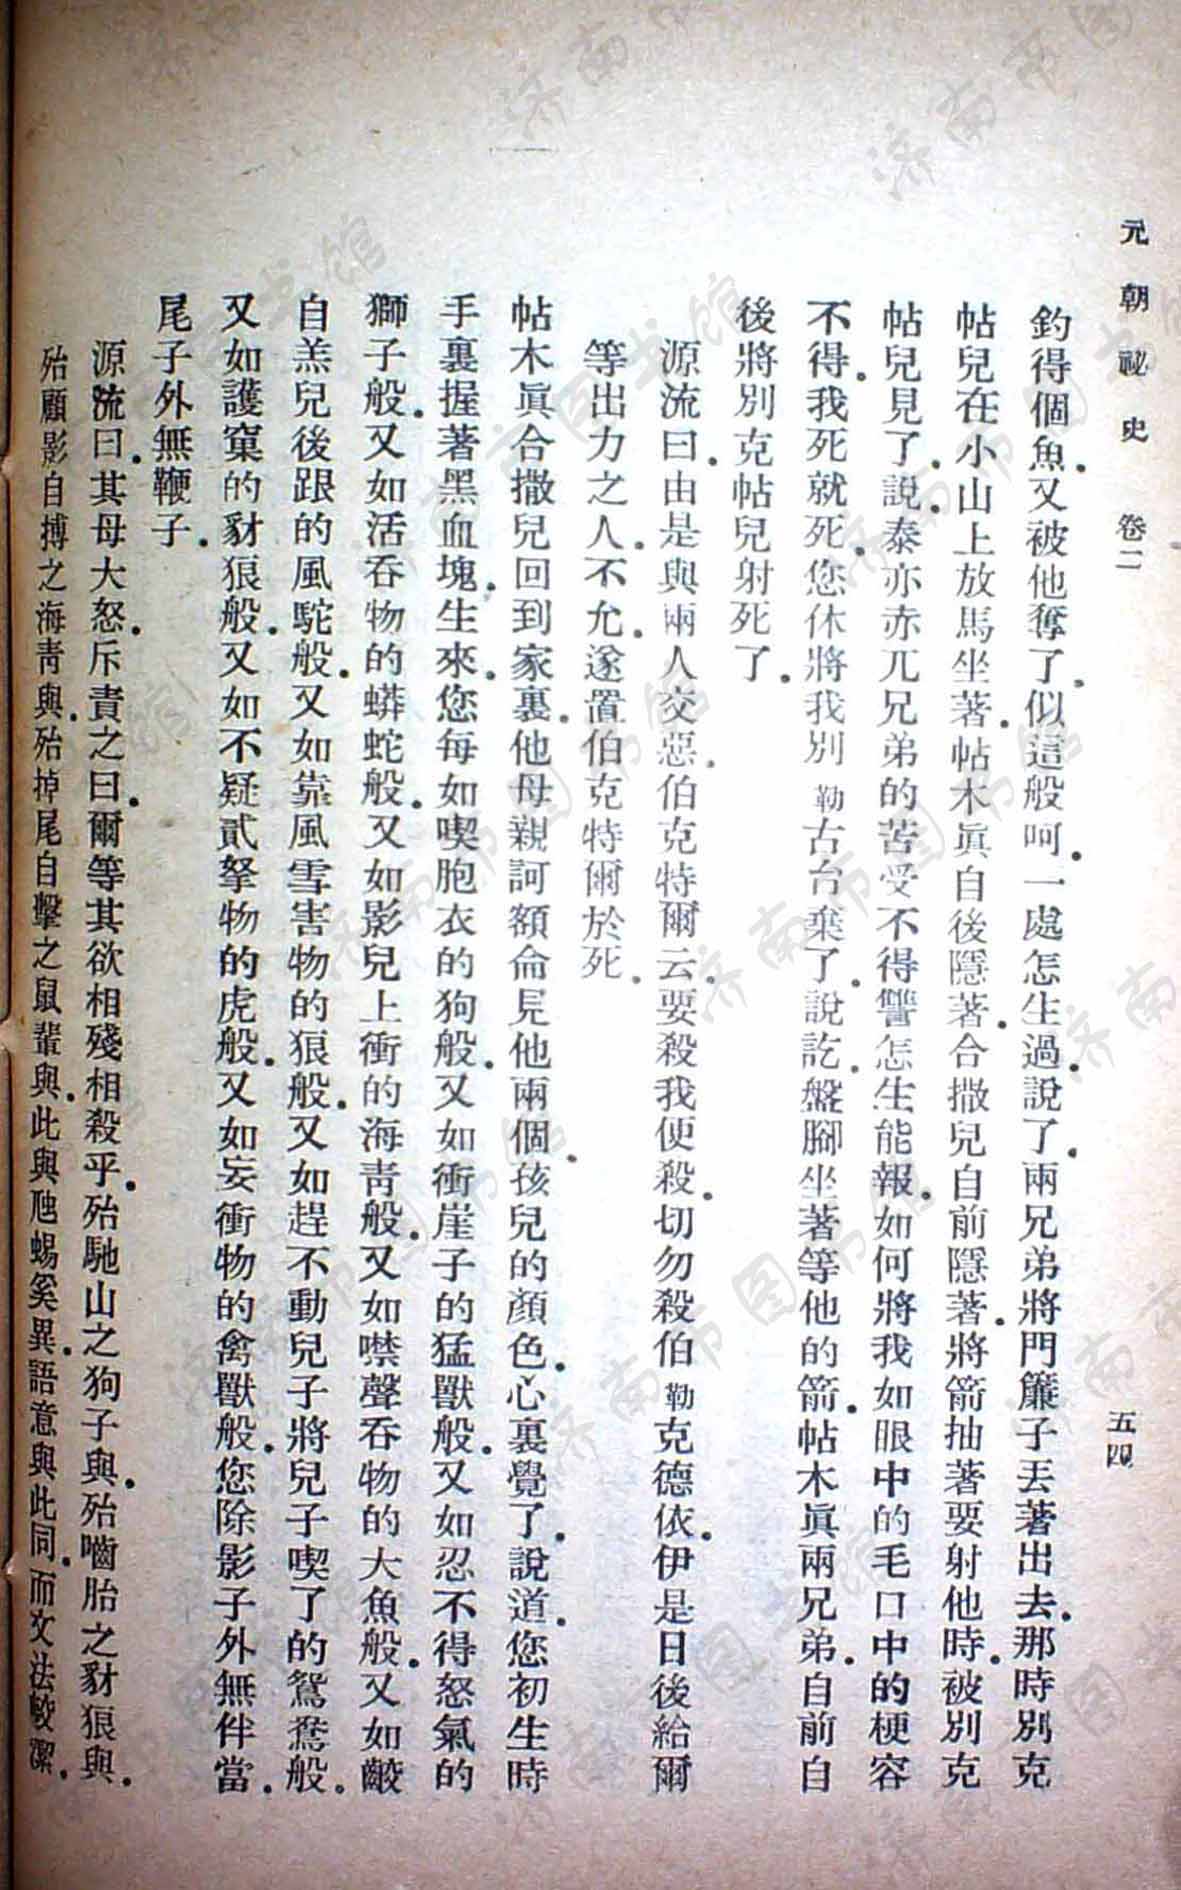 元朝祕史 卷二 五四
釣得個魚．又被他奪了．似這般呵．一處怎生過．說了．兩兄弟將門簾子丟著出去．那時別克
帖兒在小山上放馬坐著．帖木眞自後隱著．合撒兒自前隱著．將箭抽著要射他時．被別克
帖兒見了．說．泰亦赤兀兄弟的苦受不得．讐怎生能報．如何將我如眼中的毛口中的梗容
不得．我死就死．您休將我別勒古台棄了．說訖．盤腳坐著等他的箭．帖木眞兩兄弟．自前自
後將別克帖兒射死了．
源流曰．由是與兩人交惡．伯克特爾云．要殺我便殺．切勿殺伯勒克德依．伊是日後給爾
等出力之人．不允．遂置伯克特爾於死．
帖木眞合撒兒回到家裏．他母親訶額侖見他兩個孩兒的顏色．心裏覺了．說道．您初生時
手裏握著黑血塊．生來．您每如喫胞衣的狗般．又如衝崖子的猛獸般．又如忍不得怒氣的
獅子般．又如活吞物的蟒蛇般．又如影兒上衝的海青般．又如噤聲吞物的大魚般．又如齩
自羔兒後跟的風駝般．又如靠風雪害物的狼般．又如趕不動兒子將兒子喫了的鴛鴦般．
又如護窠的豺狼般．又如不疑貳拏物的虎般．又如妄衝物的禽獸般．您除影子外無伴當．
尾子外無鞭子．
源流曰．其母大怒．斥責之曰．爾等其欲相殘相殺乎．殆馳山之狗子與．殆嚙胎之豺狼與．
殆顧影自搏之海青與．殆掉尾自擊之鼠輩與．此與虺蜴奚異．語意與此同．而文法較潔．